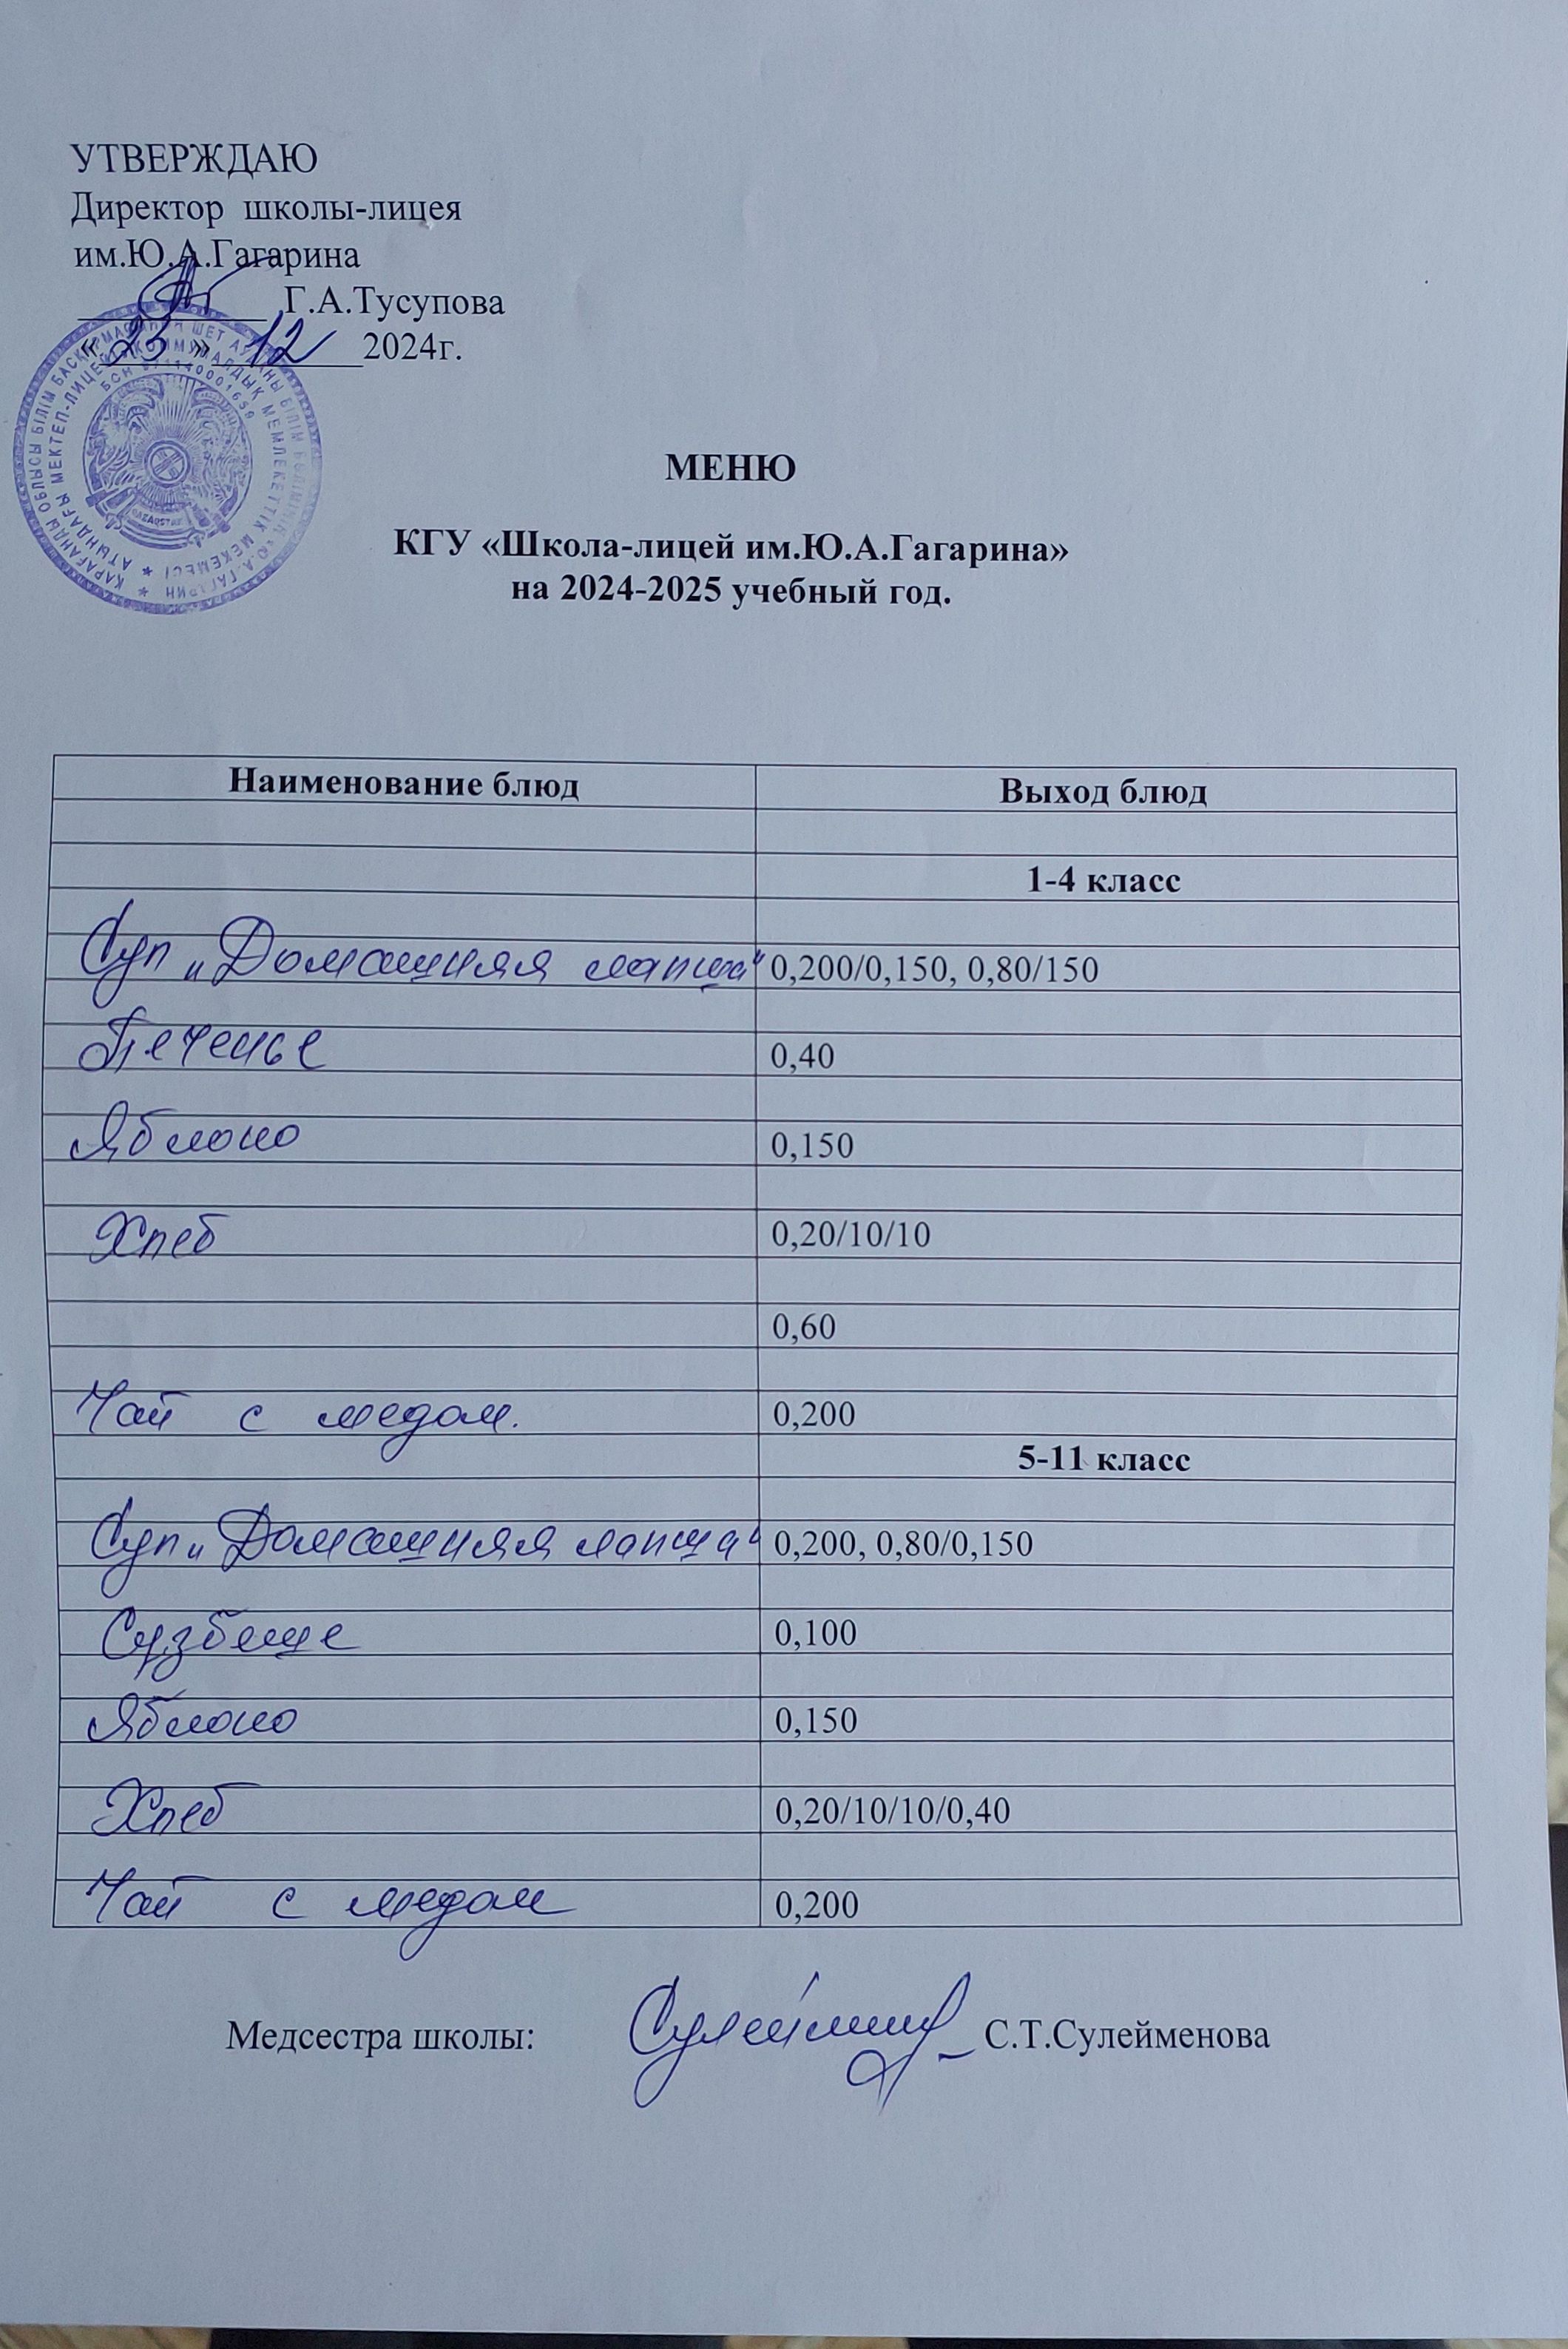 УТВЕРЖДАЮ
Директор школы-лицея
им.Ю.А.Гагарина
Г.А.Тусупова
«23» 12 2024г.
МЕНЮ
КГУ «Школа-лицей им.Ю.А.Гагарина»
на 2024-2025 учебный год.
Наименование блюд Выход блюд
1-4 класс
Суп „Домашняя лапша" 0,200/0,150, 0,80/150
Печенье 0,40
Яблоко 0,150
Хлеб 0,20/10/10
0,60
Чай с медом. 0,200
5-11 класс
Суп „Домашняя лапша" 0,200, 0,80/0,150
Сузбеше 0,100
Яблоко 0,150
Хлеб 0,20/10/10/0,40
Чай с медом 0,200
Медсестра школы: С.Т.Сулейменова
БСН
QAZAQSTAN